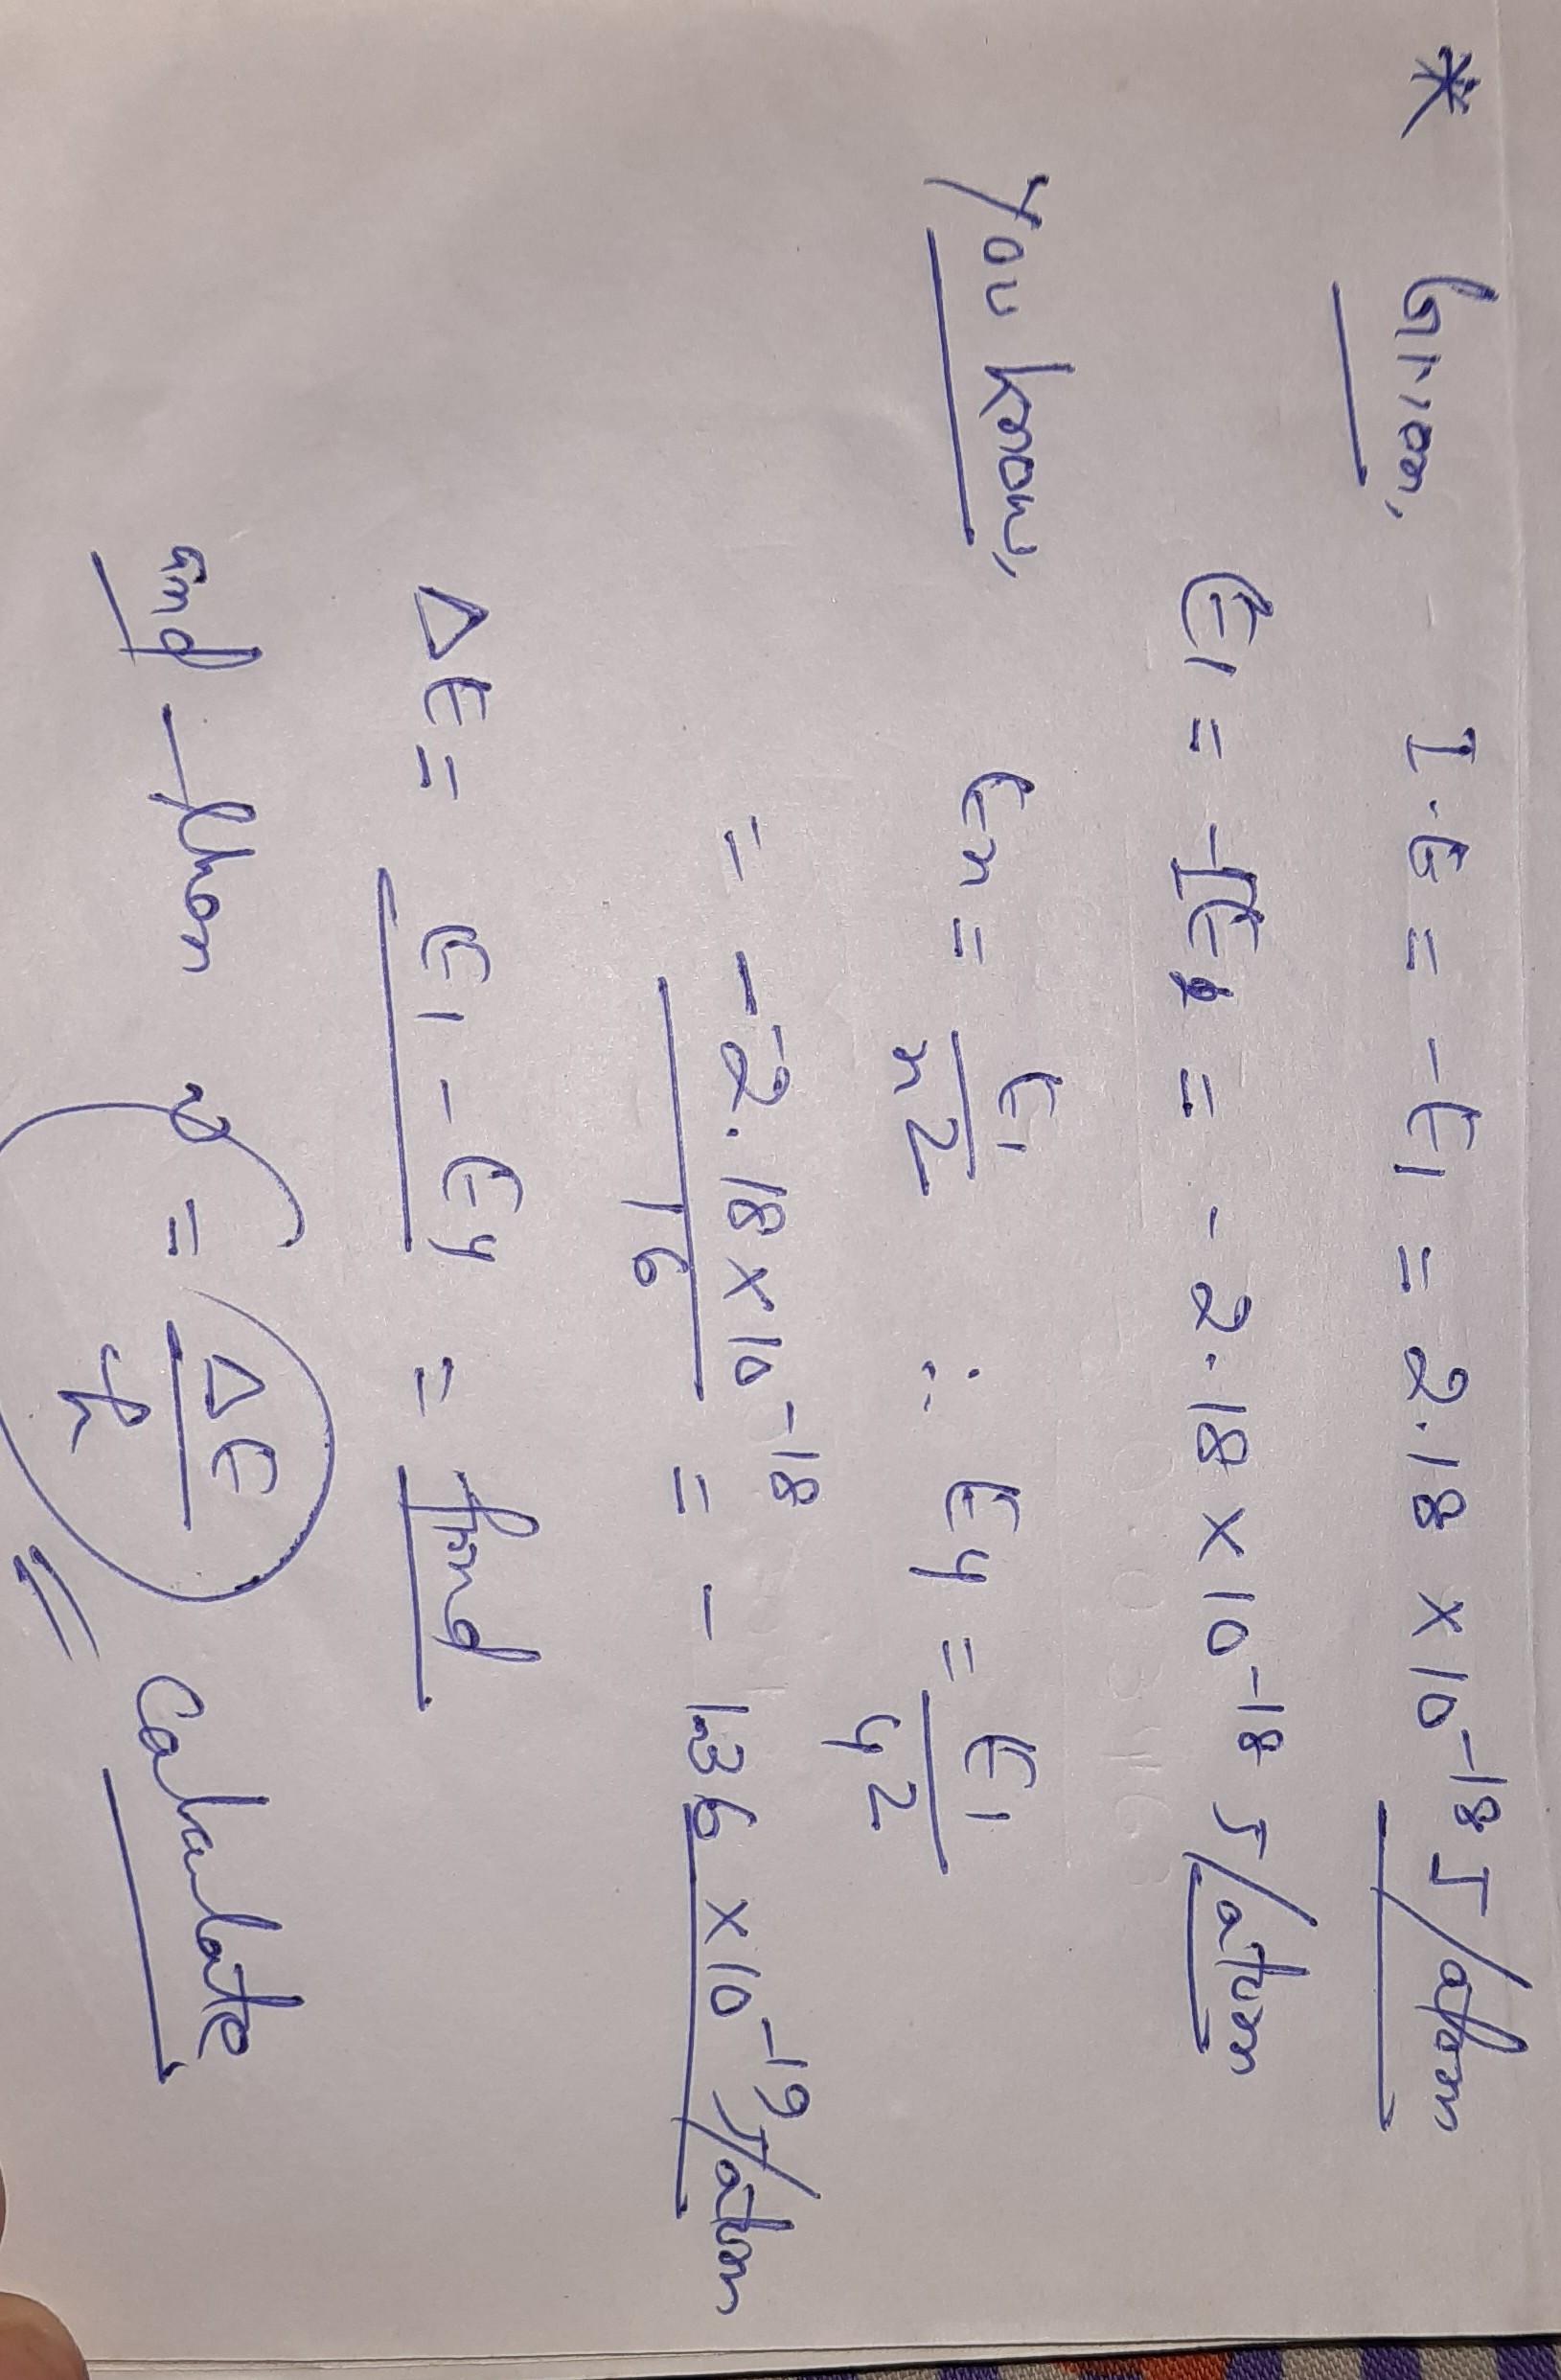 * Given, I.E = - E1 = 2.18 x 10^-18 J/atom
E1 = - IE = - 2.18 x 10^-18 J/atom
You know, En = E1/n^2 ∴ E4 = E1/4^2
= - 2.18 x 10^-18 / 16 = - 1.36 x 10^-19 J/atom
ΔE = E1 - E4 = find
and then ν = ΔE/h calculate